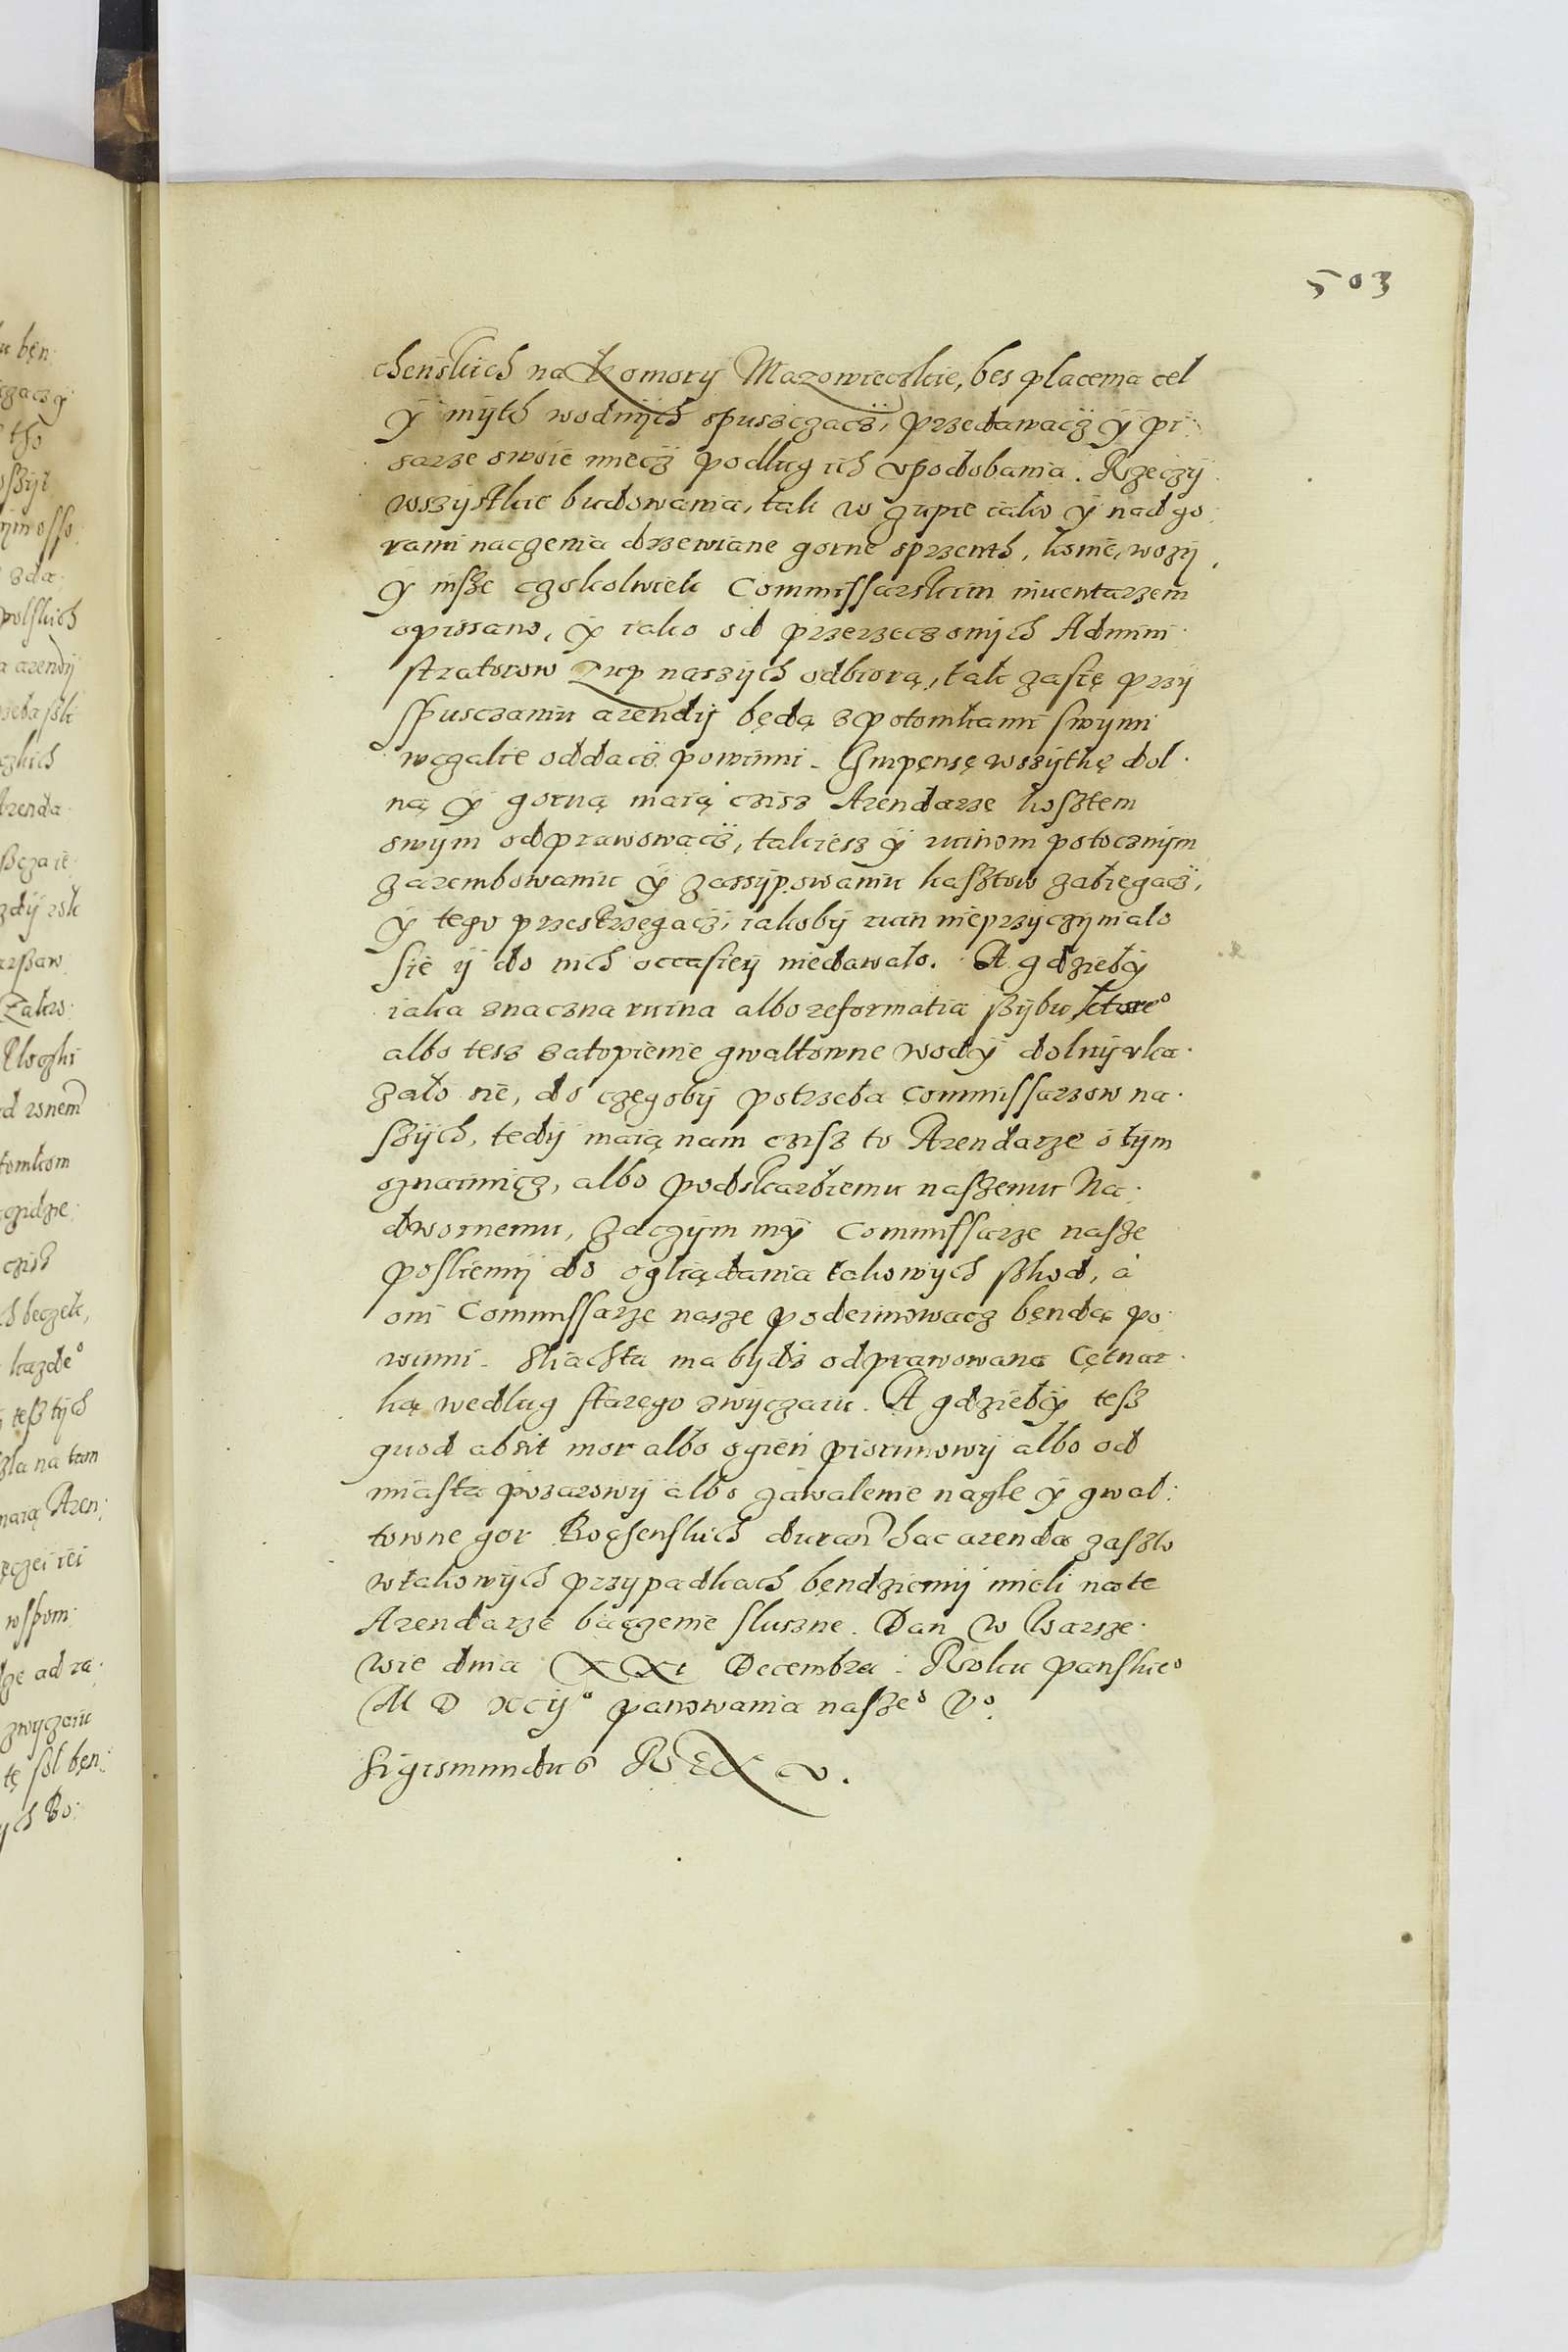 503
chenskich na Komory Mazowieczkie, bes placenia cel
y myth wodnych spusczacz, przedawacz y pi
sarze swoie miecz podlug ich vpodobania. Rzeczy
wszystkie budowania, tak w zupie iako y nad go
rami naczenia drzewiane gorne sprzenth, konie, wozy,
y insze czokolwiek Commissarskim inuentarzem
opissano, y iako od przerzeczonych Admini
stratorow Zup naszych odbiorą, tak zasię przy
spusczaniu arendy będą s potomkami swymi
wczalie oddacz powinni. Impensę wszytkę dol
ną y gorną maią czisz Arendarze kosztem
swym odprawowacz, takiesz y ruinom potocznym
zarembowaniu y zassypowaniu kasztow zabiegacz,
y tego przestrzegacz, iakoby ruin nieprzyczynialo
sie y do nich occasiey niedawało. A gdzieby
iaka znaczna ruina albo reformatia szybu ktore°
albo tesz zatopienie gwaltowne wody dolny vka
zało sie, do czegoby potrzeba Commissarzow na
szych, tedy maią nam czisz to Arendarze o tym
oznaimicz, albo podskarbiemu naszemu Na
dwornemu, Zaczym my Commissarze nasze
posliemy do ogliądania takowych szkod, a
oni Commissarze nasze podeimowacz bęndą po
winni. Sliachta ma bydz odprawowana Cętnar
ką wedlug starego zwyczaiu. A gdzieby tesz
quod absit mor albo ogień piorunowy albo od
miasta pozarowy albo zawalenie nagle y gwał
towne gor Bochenskich duran hac arenda zaszlo
w takowych przypadkach bęndziemy mieli na te
Arendarze baczenie sluszne. Dan w Warsze
wie dnia XXI Decembra. Roku panskie°
M D xcij° panowania nasze° V°.
Sigismundus REX